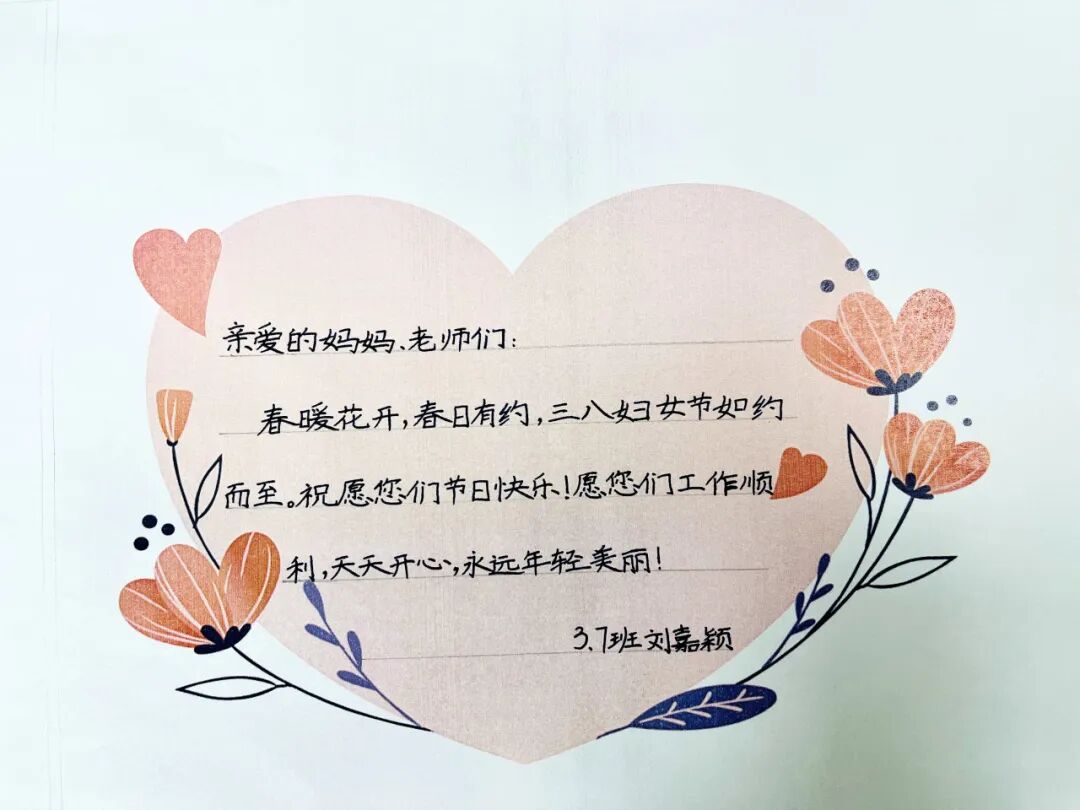 亲爱的妈妈、老师们:
春暖花开,春日有约,三八妇女节如约
而至。祝愿您们节日快乐!愿您们工作顺
利,天天开心,永远年轻美丽!
3.7班刘嘉颖